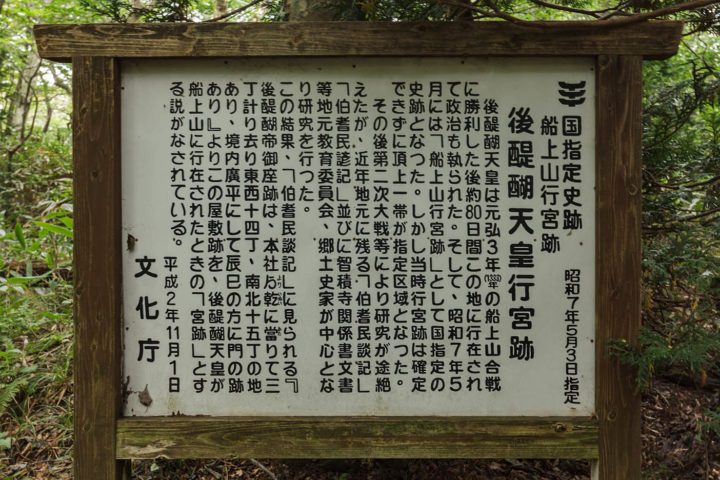 国指定史跡
船上山行宮跡
昭和7年5月3日指定
後醍醐天皇行宮跡
後醍醐天皇は元弘3年の船上山合戦
に勝利した後約80日間この地に行在され
て政治も執られた。そして、昭和7年5
月には「船上山行宮跡」として国指定の
史跡となった。しかし当時行宮跡は確定
できずに頂上一帯が指定区域となった。
その後第二次大戦等により研究が途絶
えたが、近年地元に残る「伯耆民談記」
「伯耆民諺記」並びに智積寺関係書文書
等地元教育委員会、郷土史家が中心とな
り研究を行った。
この結果、「伯耆民談記」に見られる『
後醍醐帝御座跡は、本社乃乾に當りて三
丁計り去り東西十四丁、南北十五丁の地
あり、境内廣平にして辰巳の方に門の跡
あり』よりこの屋敷跡を、後醍醐天皇が
船上山に行在されたときの「宮跡」とす
る説がなされている。
平成2年11月1日
文化庁